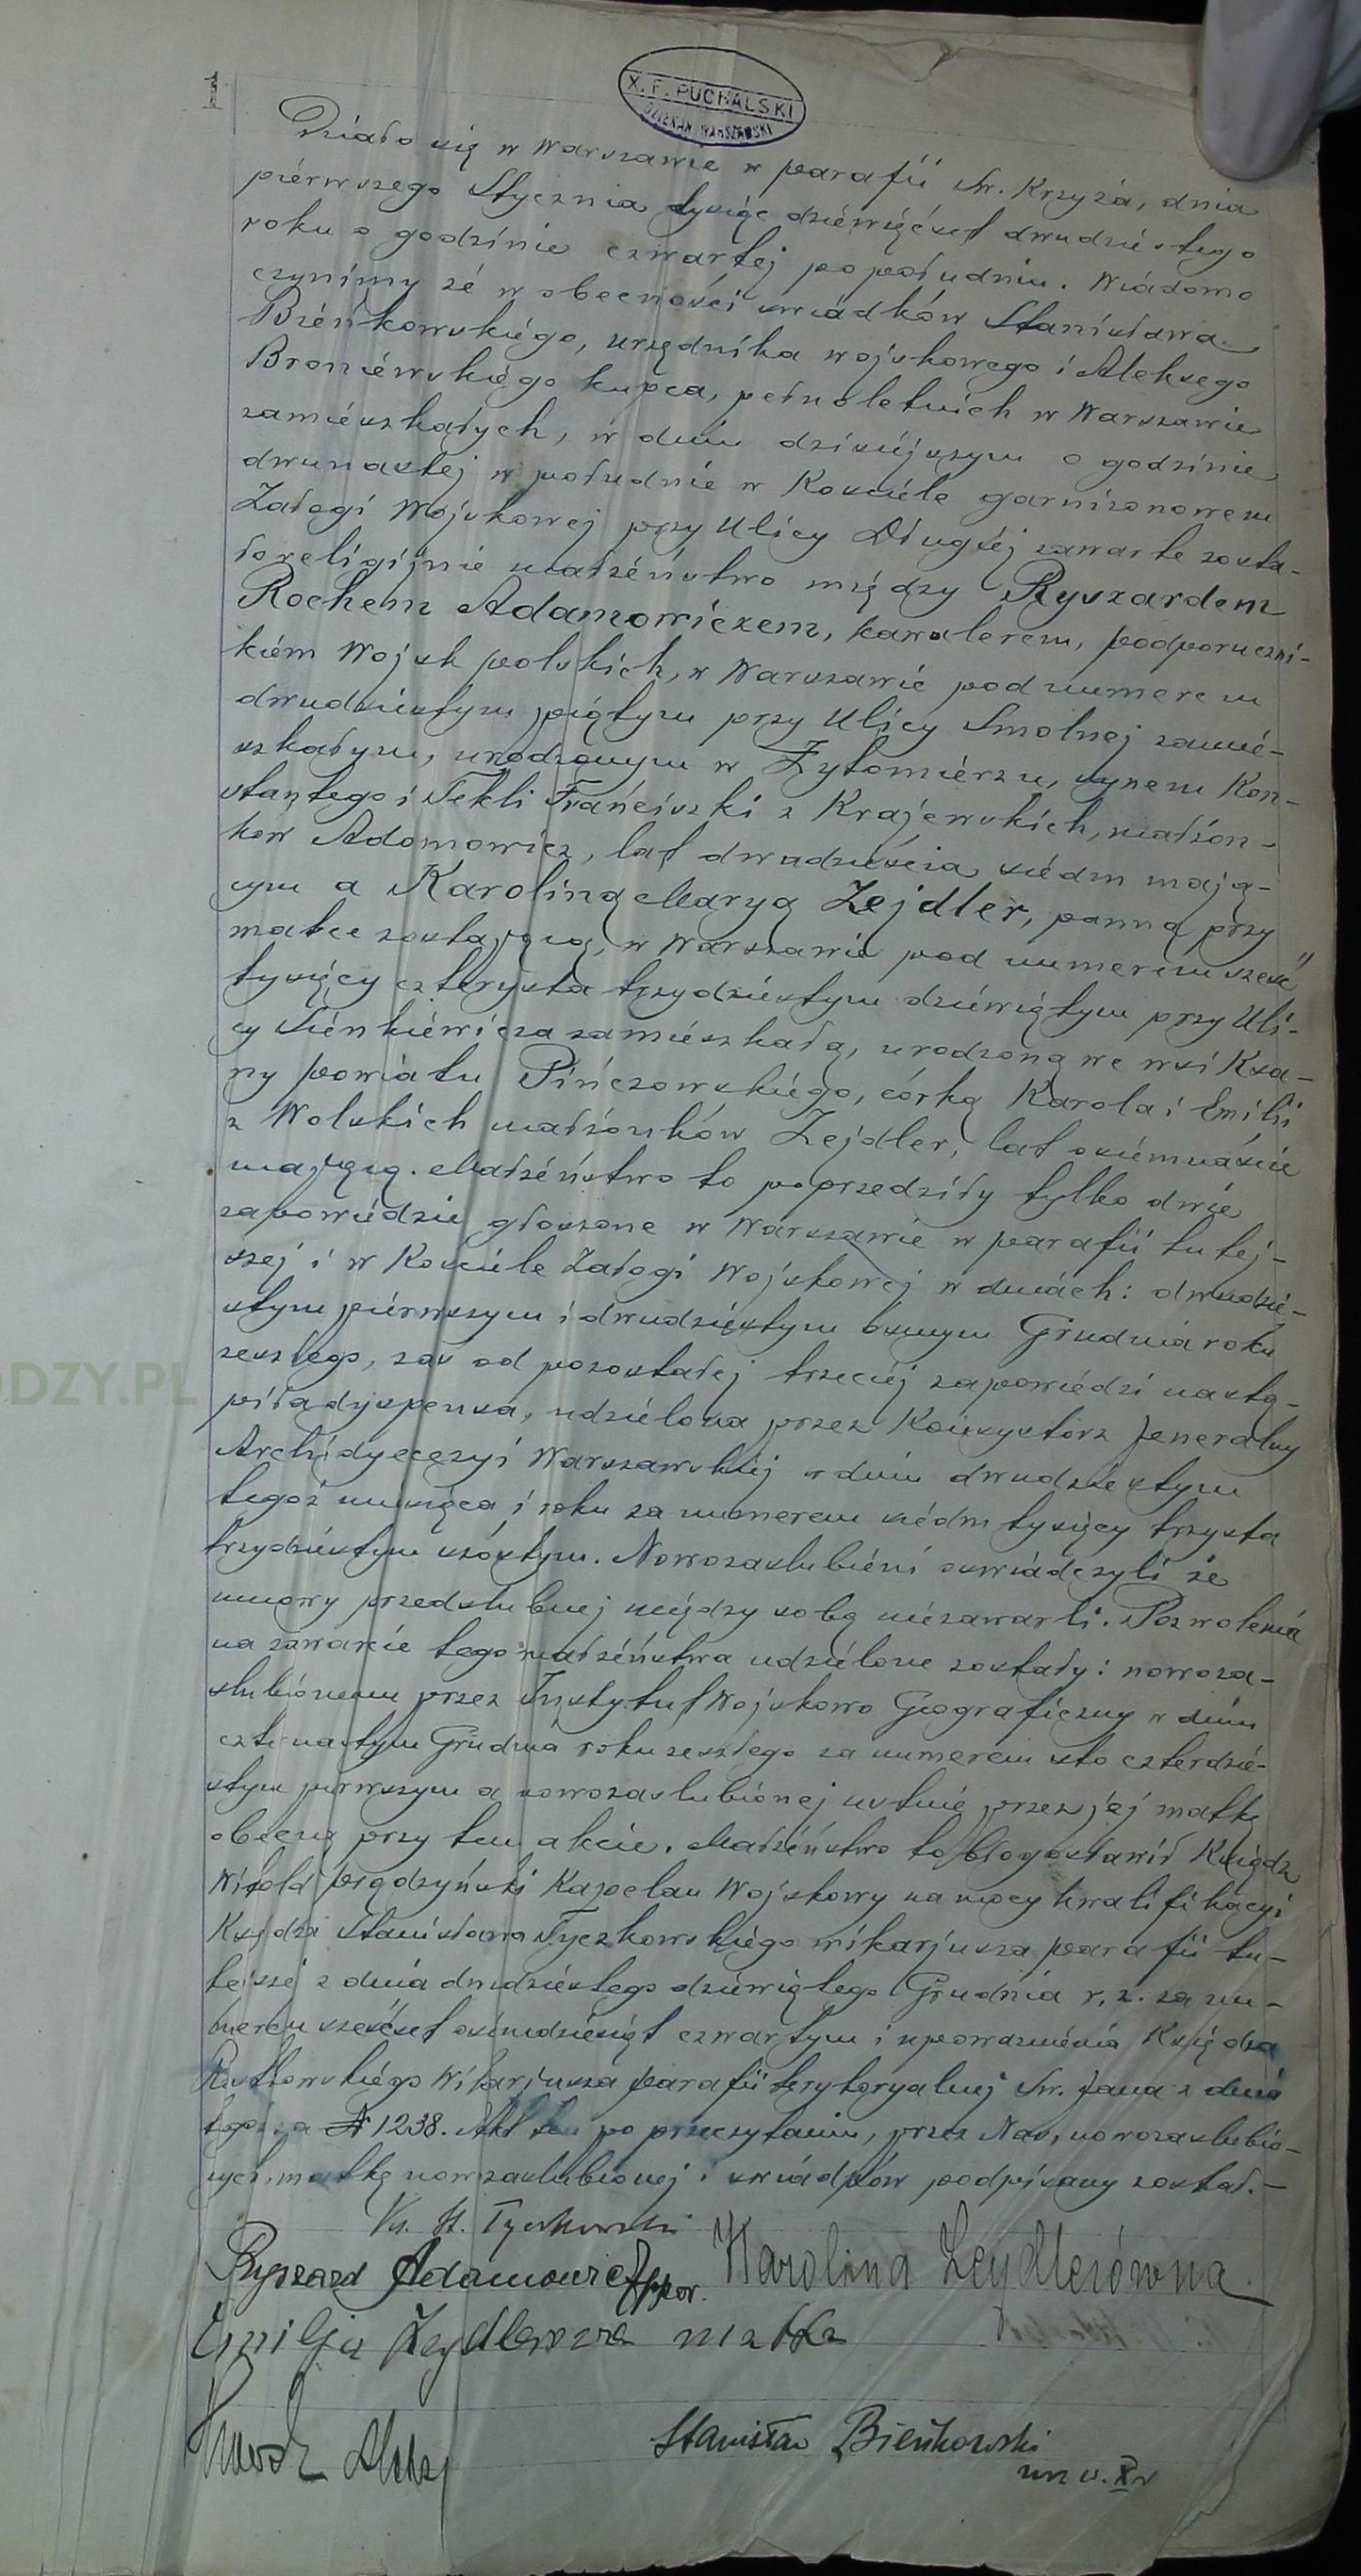 1
X. F. PUCHALSKI
DZIEKAN WARSZAWSKI
Działo się w Warszawie w parafii Św. Krzyża, dnia
pierwszego Stycznia tysiąc dziewięćset dwudziestego
roku o godzinie czwartej po południu. Wiadomo
czynimy że w obecności świadków Stanisława
Bieńkowskiego, urzędnika wojskowego i Aleksego
Broniewskiego kupca, pełnoletnich w Warszawie
zamieszkałych, w dniu dzisiejszym o godzinie
dwunastej w południe w Kościele garnizonowem
Załogi Wojskowej przy Ulicy Długiej zawarte zosta-
ło religijnie małżeństwo między Ryszardem
Rochem Adamowiczem, kawalerem, podporuczni-
kiem Wojsk polskich, w Warszawie pod numerem
dwudziestym piątym przy Ulicy Smolnej zamie-
szkałym, urodzonym w Żytomierzu, synem Kon-
stantego i Tekli Franciszki z Krajewskich, małżon-
ków Adamowicz, lat dwadzieścia siedm mają-
cym a Karoliną Maryą Zejdler, panną przy
matce zostającą, w Warszawie pod numerem sześć
tysięcy czterysta trzydziestym dziewiątym przy Uli-
cy Sienkiewicza zamieszkałą, urodzoną we wsi Ksa-
ny powiatu Pińczowskiego, córką Karola i Emilii
z Wolskich małżonków Zejdler, lat ośiemnaście
mającą. Małżeństwo to poprzedziły tylko dwie
zapowiedzie głoszone w Warszawie w parafii tutej-
szej i w Kościele Załogi Wojskowej w dniach: dwudzie-
stym pierwszym i dwudziestym ósmym Grudnia roku
zeszłego, zaś od pozostałej trzeciej zapowiedzi nastą-
piła dyspensa, udzielona przez Konsystorz Jeneralny
Archidyecezyi Warszawskiej w dniu dwudziestym
tegoż miesiąca i roku za numerem siedm tysięcy trzysta
trzydziestym szóstym. Nowozaślubieni oświadczyli że
umowy przedślubnej między sobą niezawarli. Pozwolenia
na zawarcie tego małżeństwa udzielone zostały: nowoza-
ślubionemu przez Instytut Wojskowo Geograficzny w dniu
czternastym Grudnia roku zeszłego za numerem sto czterdzie-
stym pierwszym a nowozaślubionej ustnie przez jej matkę
obecną przy tem akcie. Małżeństwo to błogosławił Ksiądz
Witold Kapelan Wojskowy na mocy kwalifikacyi
Księdza Stanisława Tyczkowskiego wikarjusza parafii tu-
tejszej z dnia dwudziestego dziewiątego Grudnia r. z. za nu-
merem sześćset ośmdziesiąt czwartym i upoważnienia Księdza
Wikarjusza parafii terytoryalnej Św. Jana z dnia
tegoż za № 1238. Akt ten po przeczytaniu, przez Nas, nowozaślubio-
nych, matkę nowozaślubionej i świadków podpisany został.—
Ks. St. Tyczkowski
Ryszard Adamowicz ppor. Karolina Zeydlerówna
Emilja Zeydlerowa matka
Stanisław Bieńkowski